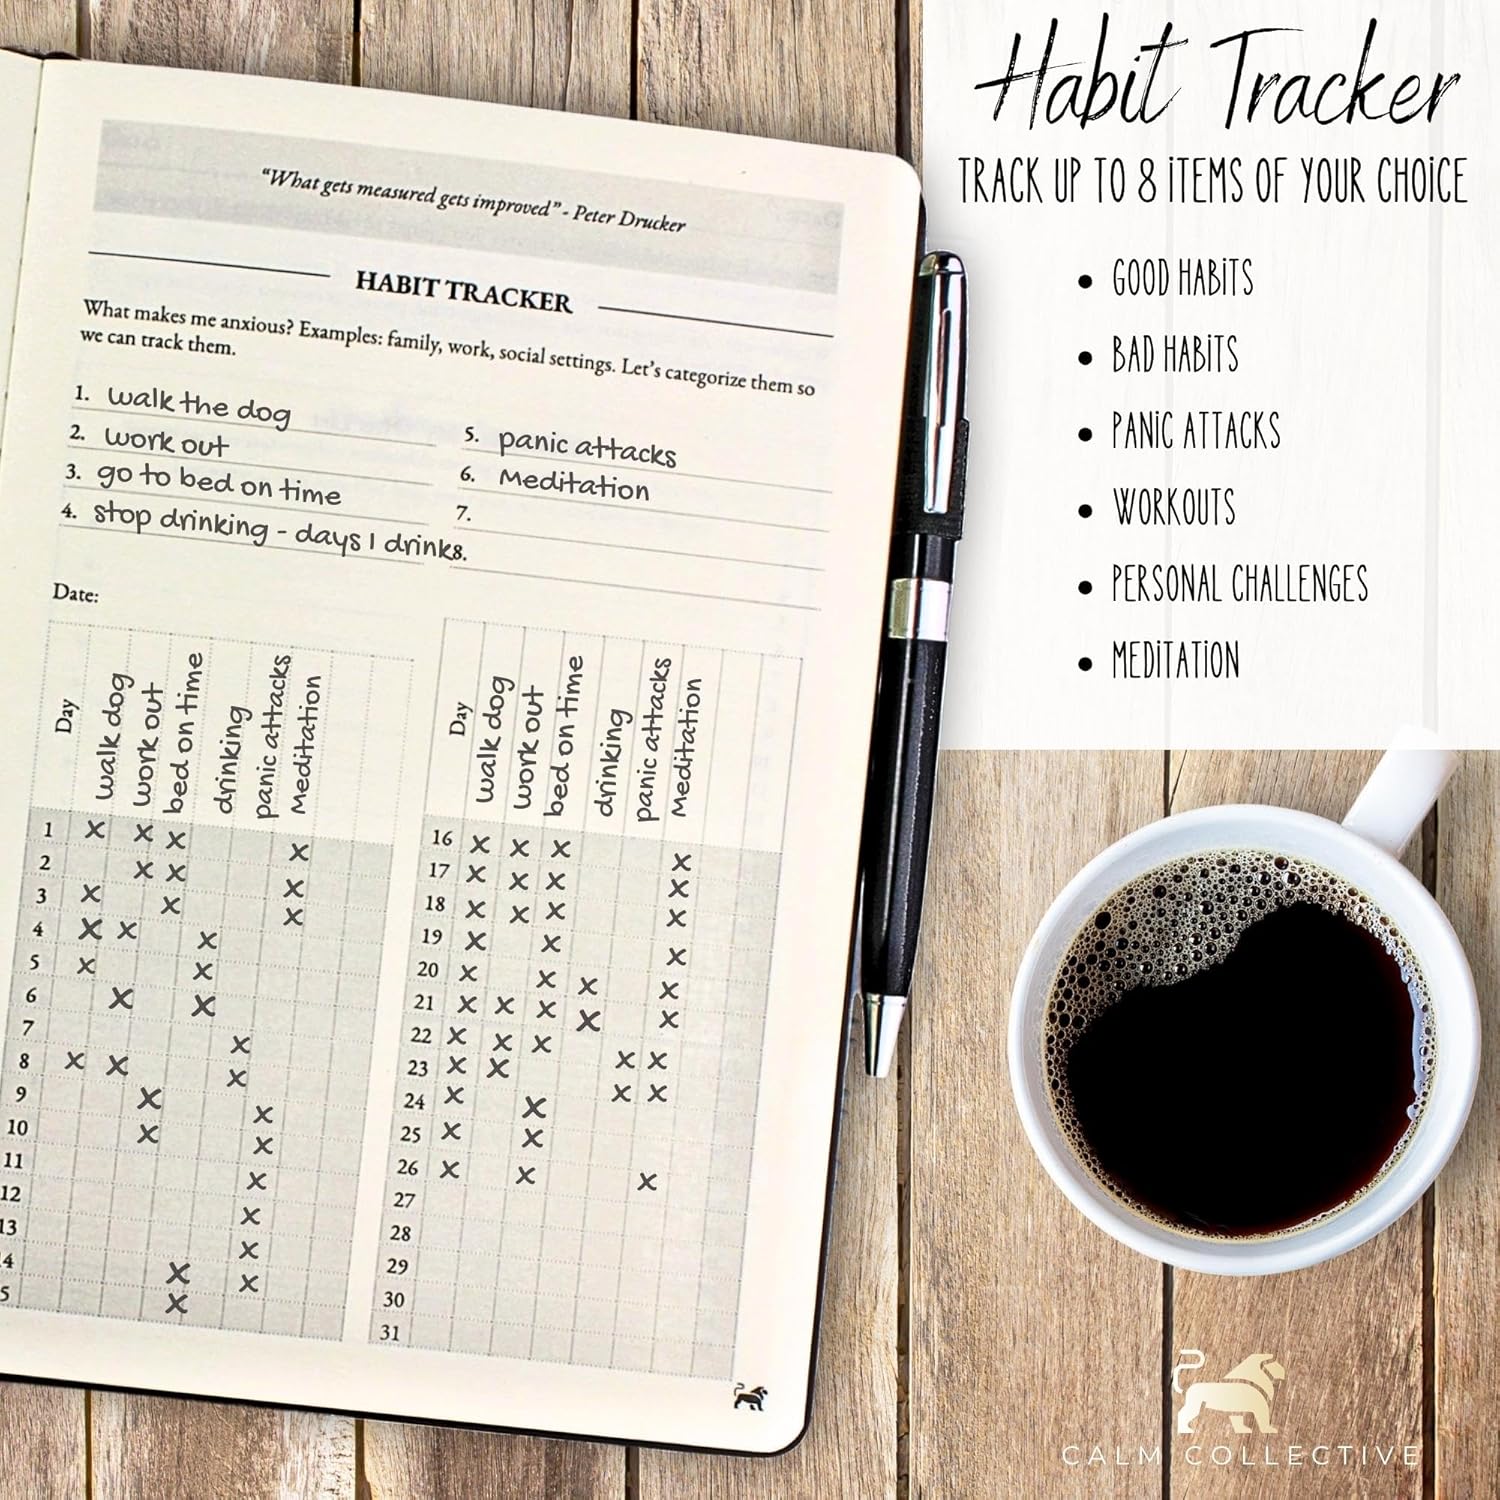 “What gets measured gets improved” - Peter Drucker
HABIT TRACKER
What makes me anxious? Examples: family, work, social settings. Let’s categorize them so
we can track them.
1. walk the dog
2. work out
3. go to bed on time
4. stop drinking - days I drink
5. panic attacks
6. Meditation
7.
8.
Date:
Day walk dog work out bed on time drinking panic attacks Meditation
1 x x x x
2 x x x
3 x x x
4 x x x
5 x x
6 x x
7 x
8 x x x
9 x x
10 x x
11 x
12 x
13 x
4 x x
5 x
Day walk dog work out bed on time drinking panic attacks Meditation
16 x x x x
17 x x x x
18 x x x x
19 x x x
20 x x x x
21 x x x x x
22 x x x x x
23 x x x x
24 x x
25 x x
26 x x x
27
28
29
30
31
Habit Tracker
TRACK UP TO 8 ITEMS OF YOUR CHOICE
• GOOD HABITS
• BAD HABITS
• PANIC ATTACKS
• WORKOUTS
• PERSONAL CHALLENGES
• MEDITATION
CALM COLLECTIVE